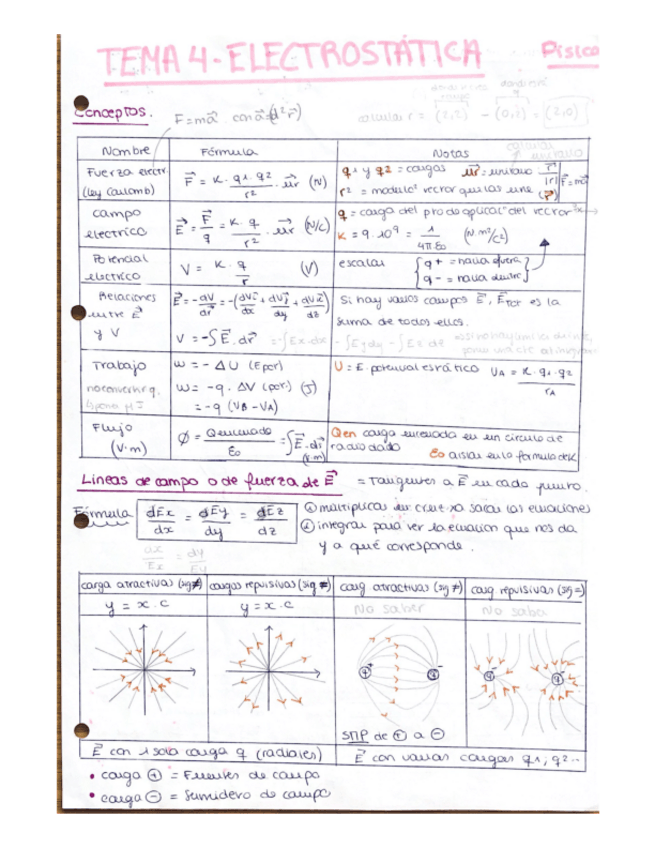 TEMA 4 - ELECTROSTÁTICA Física
Conceptos. F = ma⃗ con a⃗ = (d²r⃗) calcular r = (2,2) - (0,2) = (2,0)
Nombre Fórmula Notas
Fuerza electr. (ley Coulomb) F⃗ = K · q1 · q2 / r² · u⃗r (N) q1 y q2 = cargas u⃗r = unitario r⃗ / |r| F = ma⃗
r² = modulo² vector que las une (r⃗)
campo eléctrico E⃗ = F⃗ / q = K · q / r² · u⃗r (N/C) q = carga del pro de aplicac° del vector
K = 9 · 10⁹ = 1 / 4πεo (N·m²/C²)
Potencial eléctrico V = K · q / r (V) escalar { q+ = hacia afuera
q- = hacia dentro }
Relaciones entre E⃗ y V E⃗ = - dV / dr⃗ = -(dVi⃗/dx + dVj⃗/dy + dVk⃗/dz) Si hay varios campos E⃗, E⃗TOT es la
suma de todos ellos.
V = -∫E⃗ · dr⃗ = -∫Ex·dx - ∫Eydy - ∫Ez dz
Trabajo W = - ΔU (Epot) U = E. potencial estático UA = K · q1 · q2 / rA
W = -q · ΔV (pot.) (J)
= -q (VB - VA)
Flujo (V·m) Ø = Qencerrado / εo = ∫E⃗ · ds⃗ (V·m) Qen carga encerrada en un círculo de
radio dado εo aislar en la fórmula de K
Líneas de campo o de fuerza de E⃗ = Tangentes a E⃗ en cada punto.
Fórmula dEx / dx = dEy / dy = dEz / dz ① multiplicas en cruz xa sacar las ecuaciones
② integrar para ver la ecuación que nos da
y a qué corresponde.
dx / Ex = dy / Ey
carga atractivas (sg ≠) cargas repulsivas (sig =) carg atractivas (sg ≠) carg repulsivas (sg =)
y = x · C y = x · C No saber No saber
q+ q- q- q-
STIP de ⊕ a ⊖
E⃗ con 1 sola carga q (radiales) E⃗ con varias cargas q1, q2...
• carga ⊕ = Fuentes de campo
• carga ⊖ = Sumidero de campo